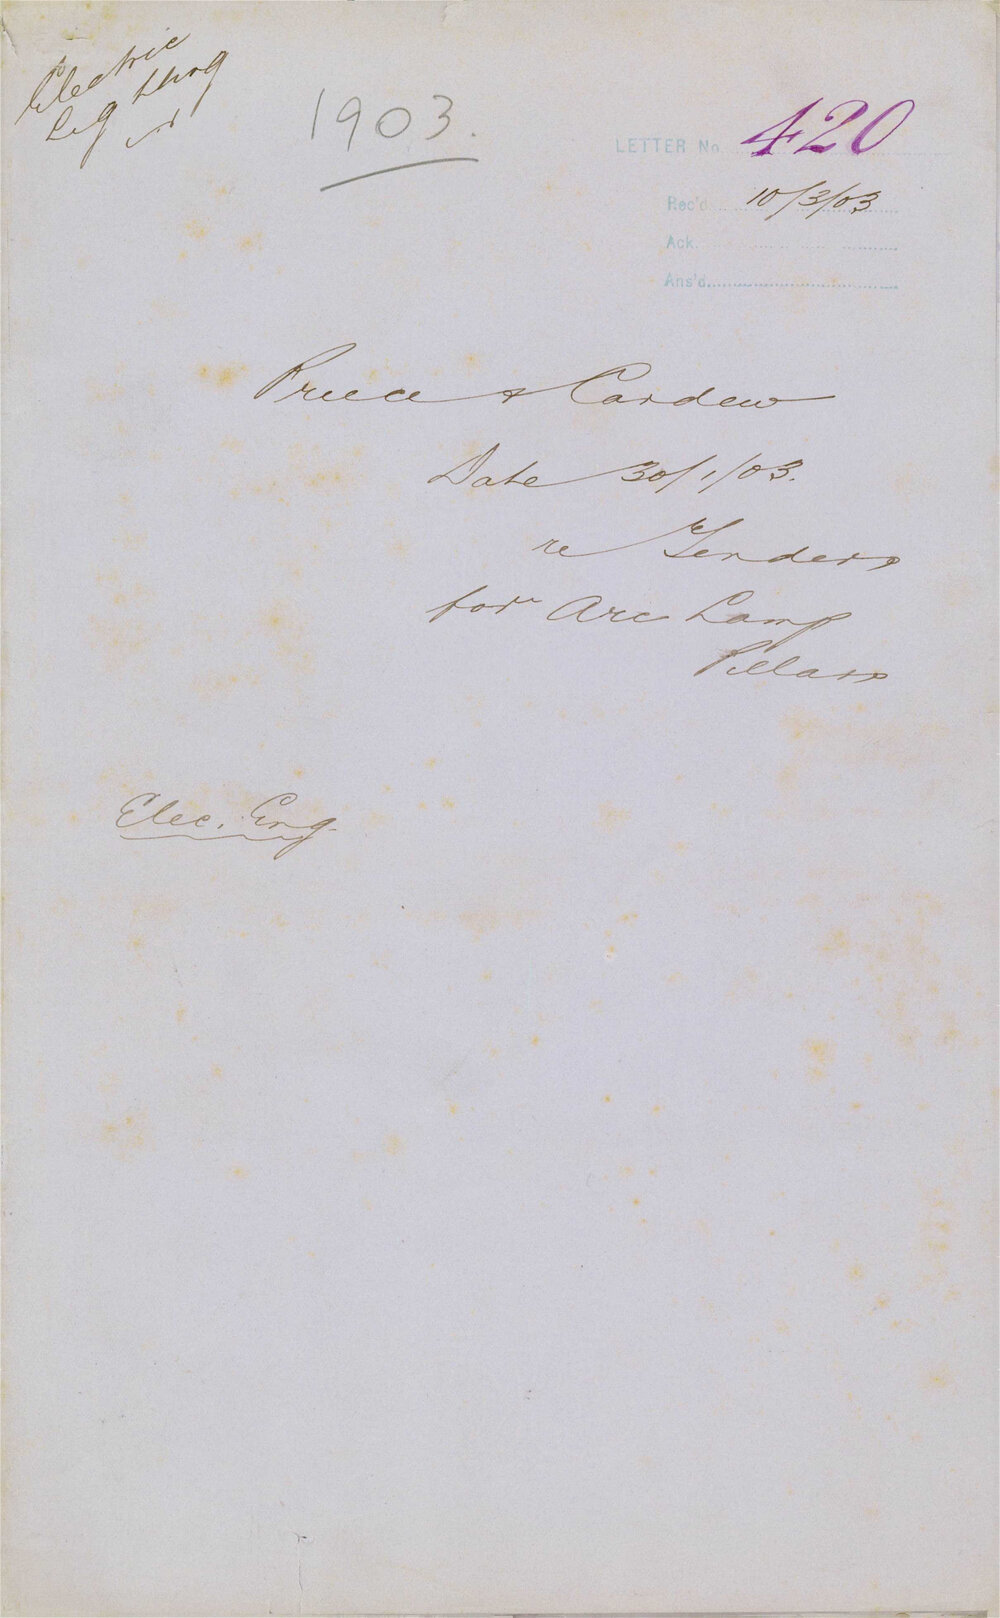 Electric
Lighting
1903.
LETTER No. 420
Rec'd 10/3/03
Ack.
Ans'd.
Preece & Cardew
Date 30/1/03.
re Tenders
for Arc Lamp
Pillars
Elec. Eng.